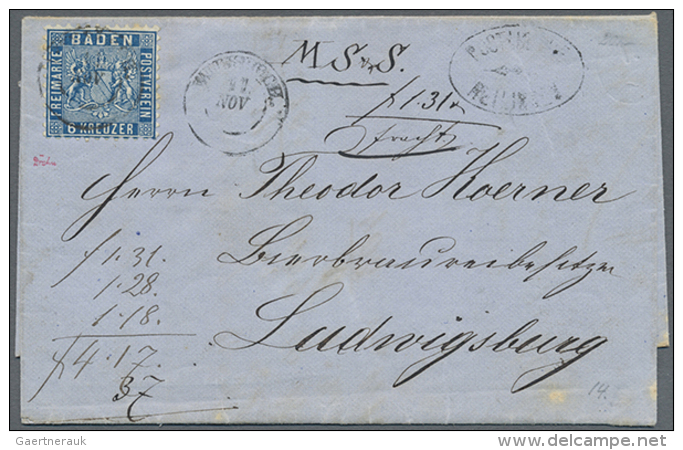 BADEN
FREIMARKE
POSTVEREIN
6 KREUZER
NOV
M S & S.
f 1.31x
Fracht
Herrn Theodor Hoerner
Bierbrauereibesitzer
Ludwigsburg
f 1.31.
1.28.
1.18.
f 4.17.
37
14.
Gaertnerauk
delcampe.net